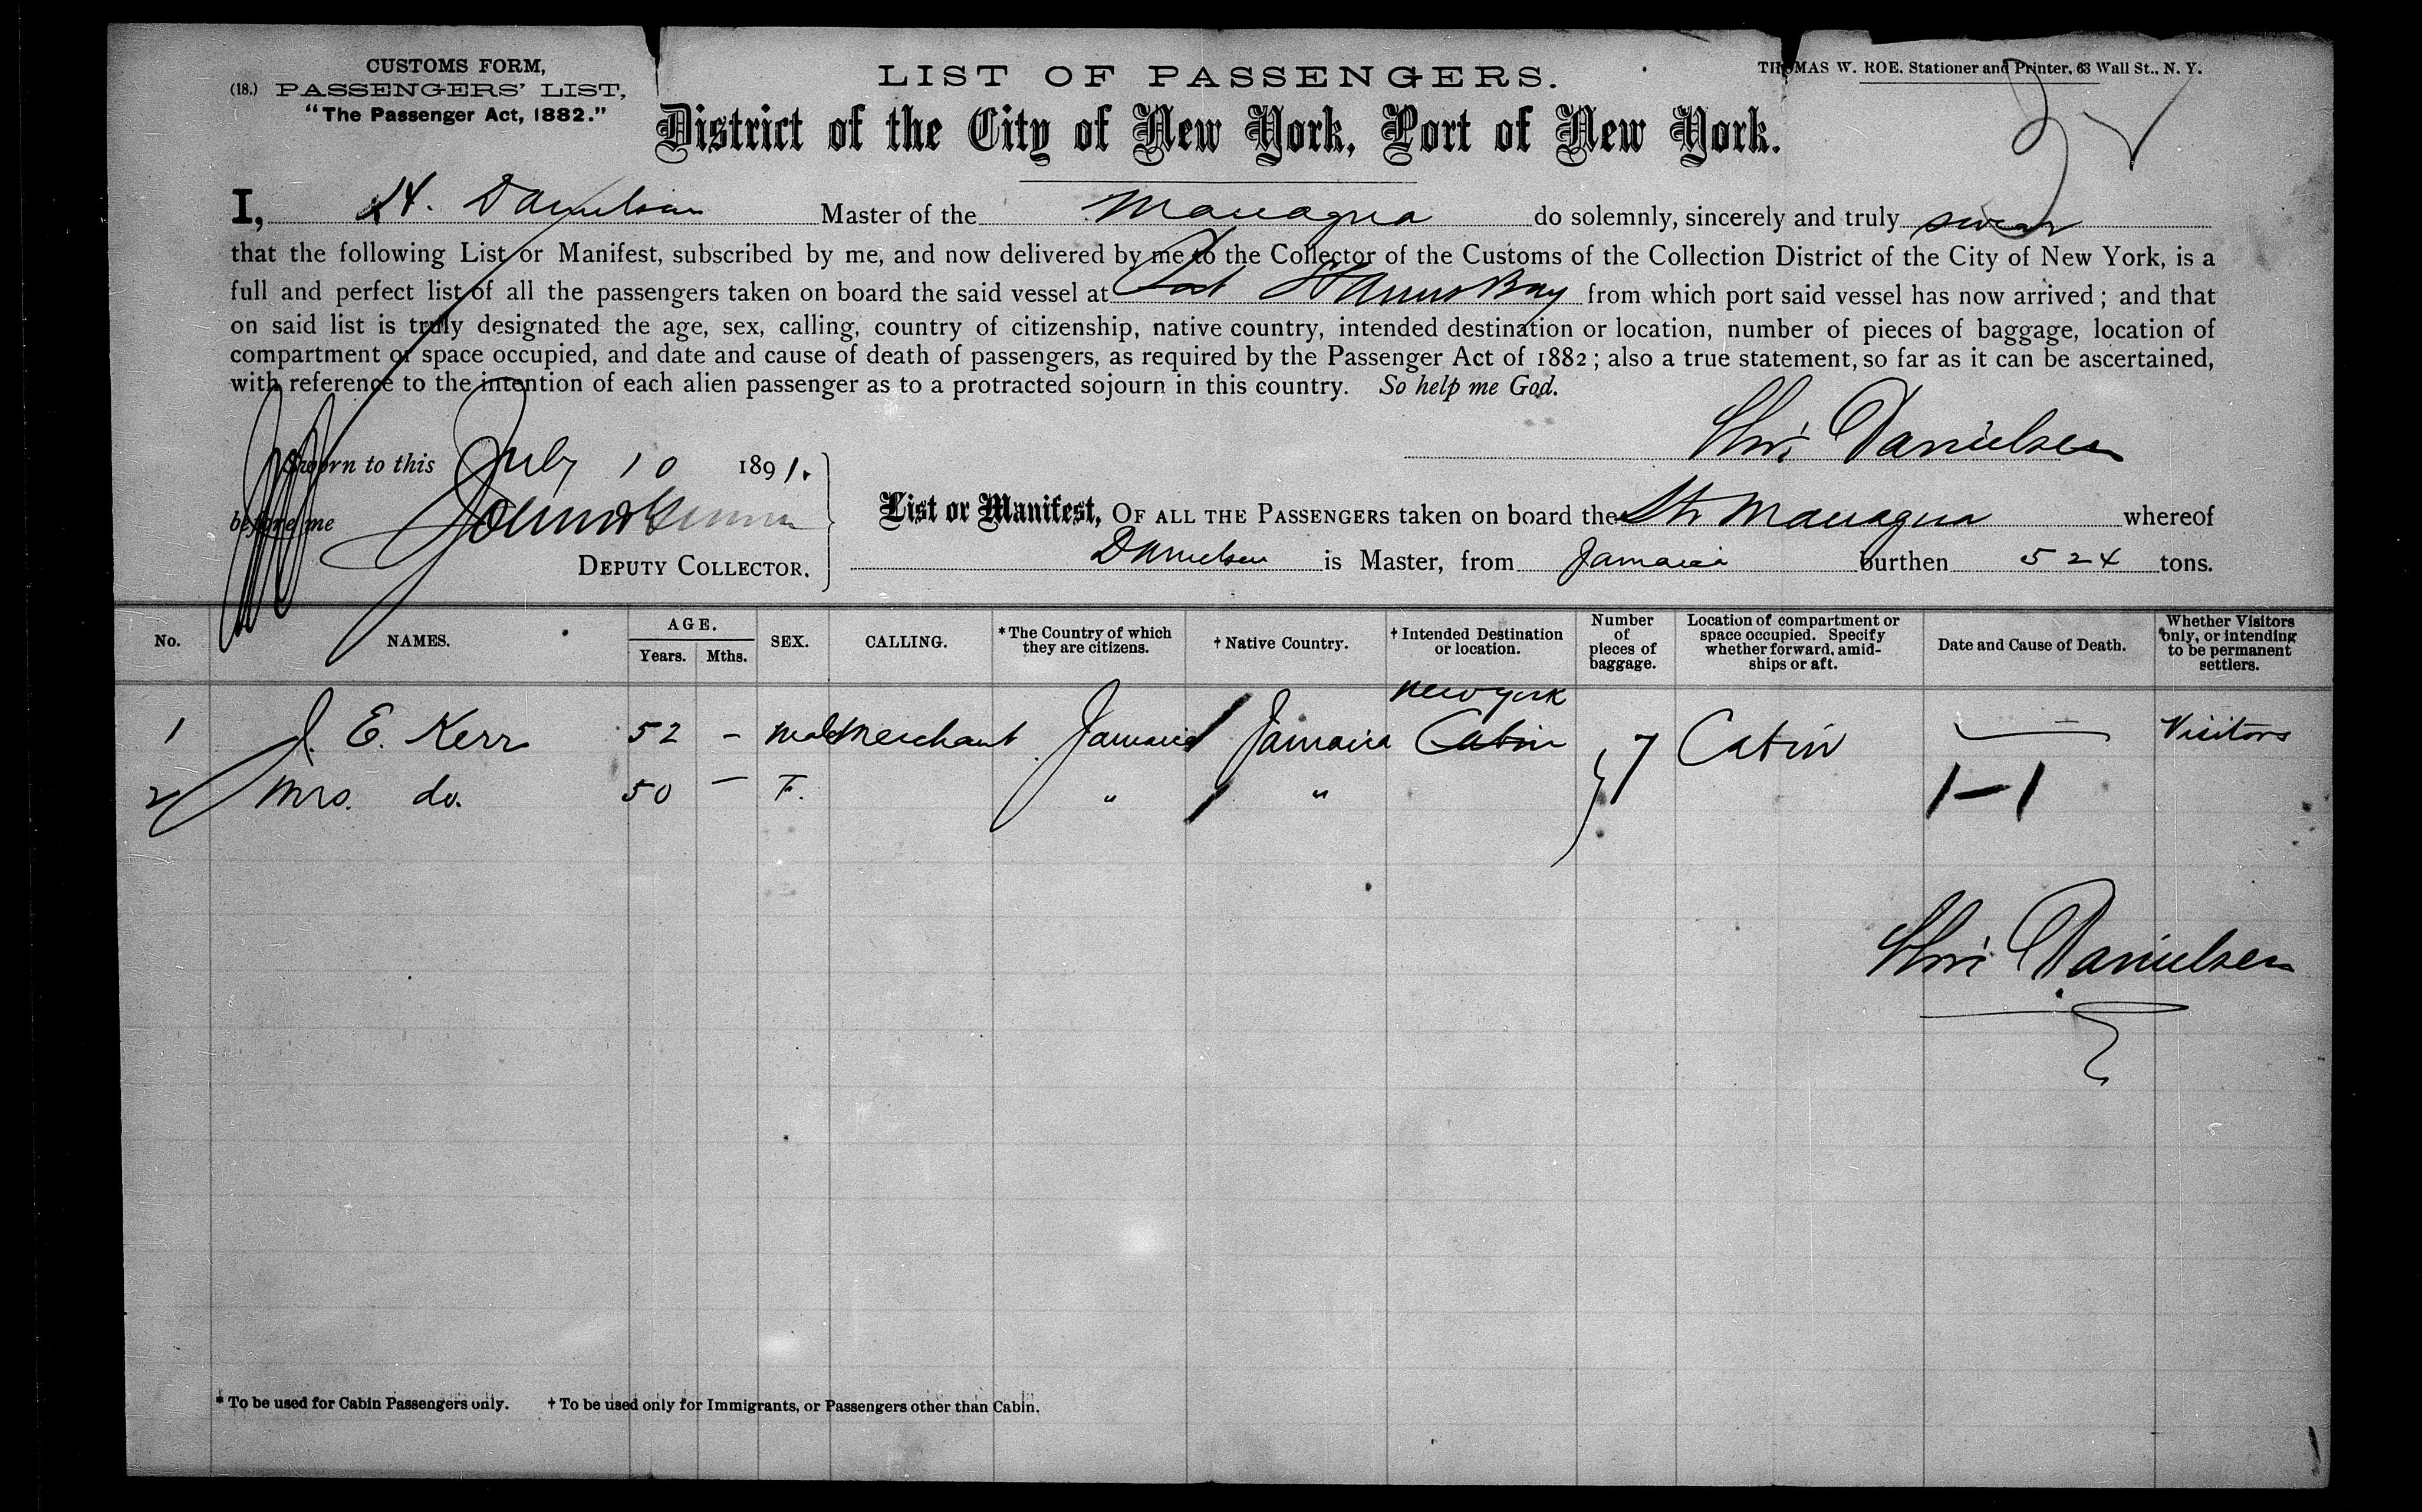 CUSTOMS FORM,
(18.) PASSENGERS' LIST,
"The Passenger Act, 1882."
LIST OF PASSENGERS.
THOMAS W. ROE, Stationer and Printer, 63 Wall St., N. Y.
District of the City of New York, Port of New York.
I, H. Danielsen Master of the Managua do solemnly, sincerely and truly swear
that the following List or Manifest, subscribed by me, and now delivered by me to the Collector of the Customs of the Collection District of the City of New York, is a
full and perfect list of all the passengers taken on board the said vessel at Bay from which port said vessel has now arrived; and that
on said list is truly designated the age, sex, calling, country of citizenship, native country, intended destination or location, number of pieces of baggage, location of
compartment or space occupied, and date and cause of death of passengers, as required by the Passenger Act of 1882; also a true statement, so far as it can be ascertained,
with reference to the intention of each alien passenger as to a protracted sojourn in this country. So help me God.
Danielsen
Sworn to this July 10 1891.
before me
DEPUTY COLLECTOR.
List or Manifest, OF ALL THE PASSENGERS taken on board the Str Managua whereof
Danielsen is Master, from Jamaica burthen 524 tons.
No. NAMES. AGE. Years. Mths. SEX. CALLING. *The Country of which they are citizens. † Native Country. † Intended Destination or location. Number of pieces of baggage. Location of compartment or space occupied. Specify whether forward, amidships or aft. Date and Cause of Death. Whether Visitors only, or intending to be permanent settlers.
New York
1 J. E. Kerr 52 – Male Merchant Jamaica Jamaica Cabin 7 Cabin Visitors
2 Mrs. do. 50 – F. " " 1–1
Danielsen
* To be used for Cabin Passengers only. † To be used only for Immigrants, or Passengers other than Cabin.